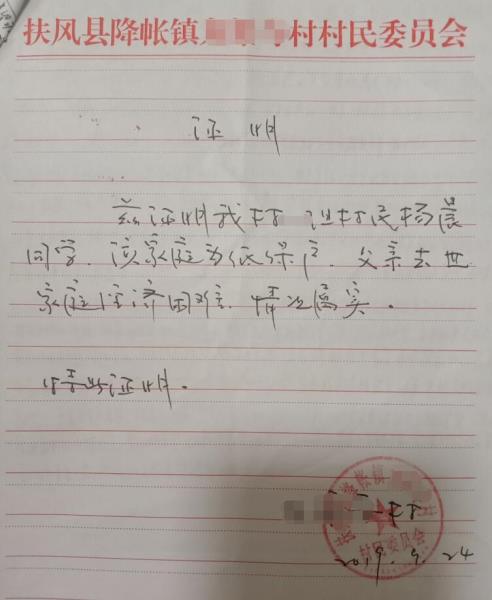 扶风县降帐镇村村民委员会
证明
兹证明我村 组村民杨晨
同学. 该家庭为低保户. 父亲去世
家庭经济困难. 情况属实.
特此证明.
村
村民委员会
2019.9.24